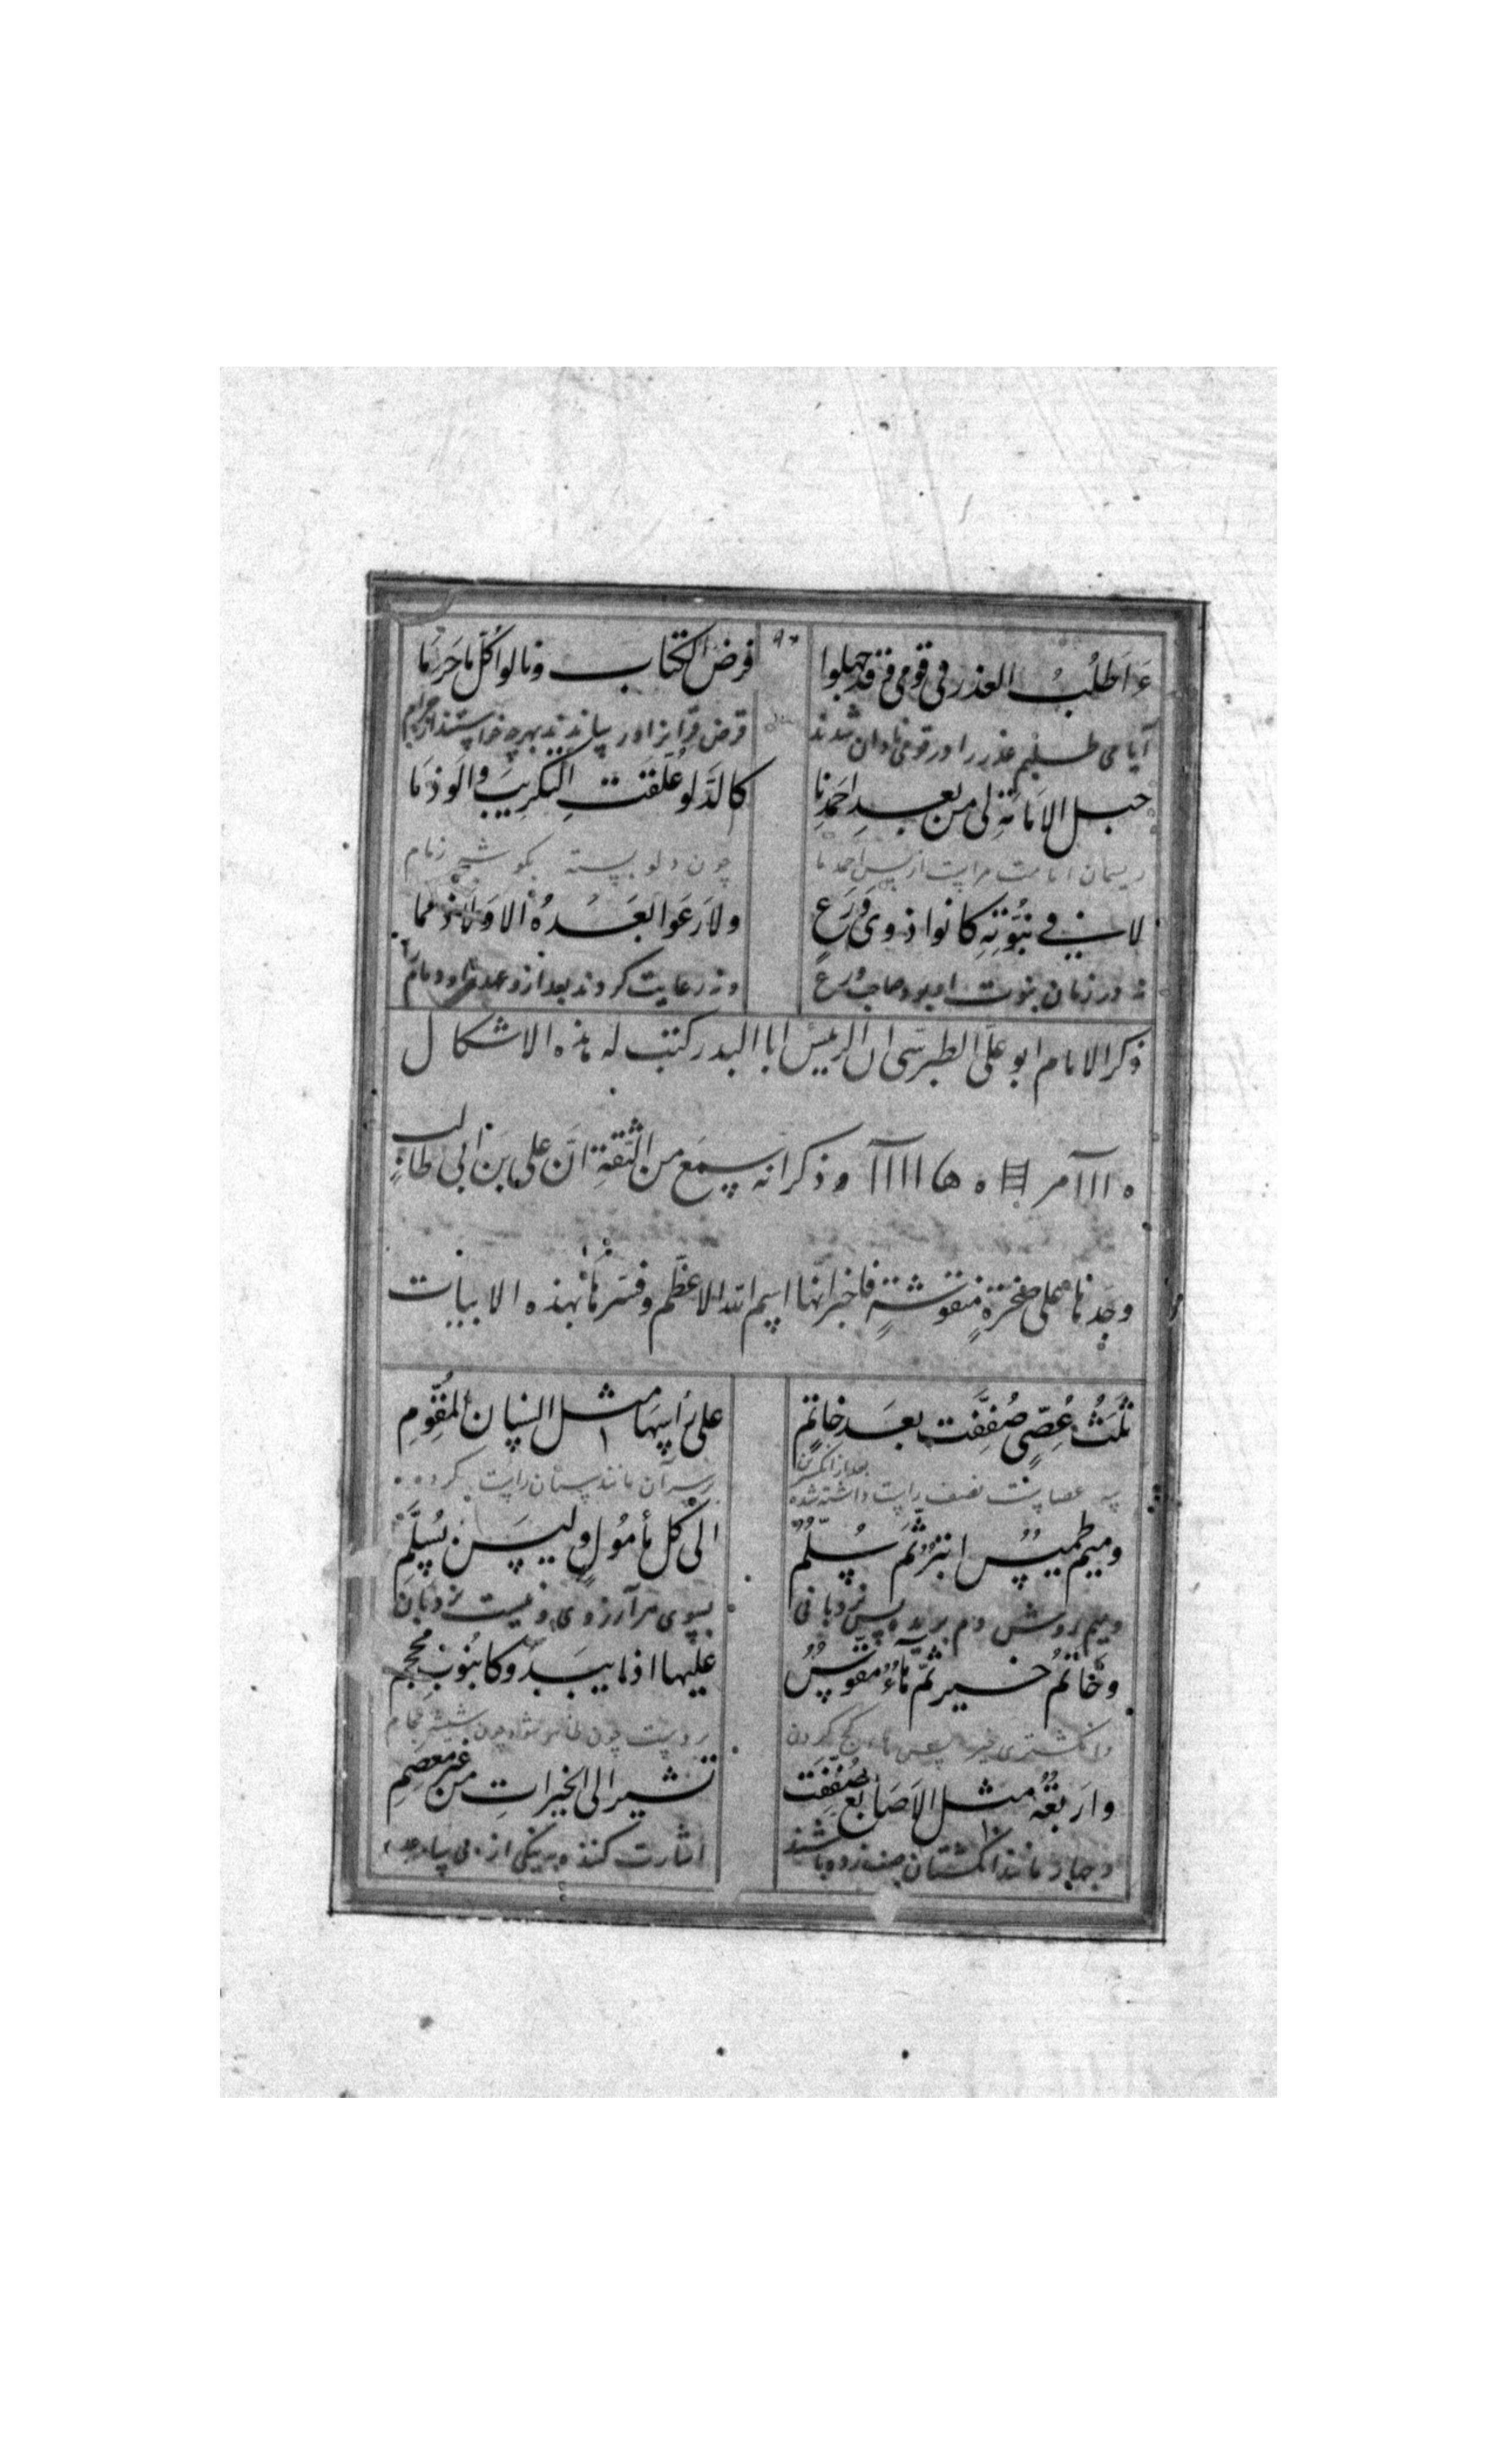 ءَاَطْلُبُ العذر فی قومی و قد جهلوا فرض الکتاب و نالوا کلّ ما حَرُمَا
آیا می طلبم عذر را در قومی نادان شدند فرض قرآنرا و رسانیدند بهرچه خواستند از حرام
حبل الاَمَانَةِ لی من بعدِ احمدِنا کالدَّلو عُلِّقَتِ التکریبَ و الوَذَمَا
ریسمان امامت مراست از پس احمد ما چون دلو بسته بگوشه زمام
لا فی نبُوّتِهِ کانوا ذوی وَرَعٍ و لا رَعَوا بَعْدَهُ اِلًّا و لا ذِمَما
نه در زمان نبوت او بودند صاحب ورع و نه رعایت کردند بعد ازو عهد و ذمام
ذکر الامام ابو علی الطبرسی ان الرئیس ابا البدر کتب له هذه الاشکال
ه ااا آ مر # ه ها اااا آ و ذکر انه سمع من الثقةِ انّ علی بن ابی طالب
وجَدناها علی صخرةٍ منقوشةٍ فاخبر انّها اسم الله الاعظم و فسّرها بهذه الابیات
ثلثُ عُصِیٍّ صُفِّفَت بعدَ خاتَمٍ علی رأسِها مثل السِّنان المُقَوَّمِ
سه عصاست بصف راست داشته شده بعد از انگشترین بر سر آن مانند سنان راست کرده
و میم طمیسٌ ابترٌ ثمّ سُلَّمٌ الی کل مأمُولٍ و لیسَ بسُلَّمِ
و میم روش دم بریده پس نردبانی بسوی هر آرزوی و نیست نردبان
و خاتَمُ خیرٍ ثمّ هاءٌ مقوّسٌ علیها اذا یبدو کانبوبِ محجمِ
و انگشتری خیر پس هاء کج کردن بروست چون ظاهر شود چون شیشه حجام
و اربعةٌ مثل الاَصَابعِ صُفِّفَت تشیر الی الخیراتِ من غیر معصمِ
و چهار مانند انگشتان صف زده باشند اشارت کنند به نیکی از بی ساعد